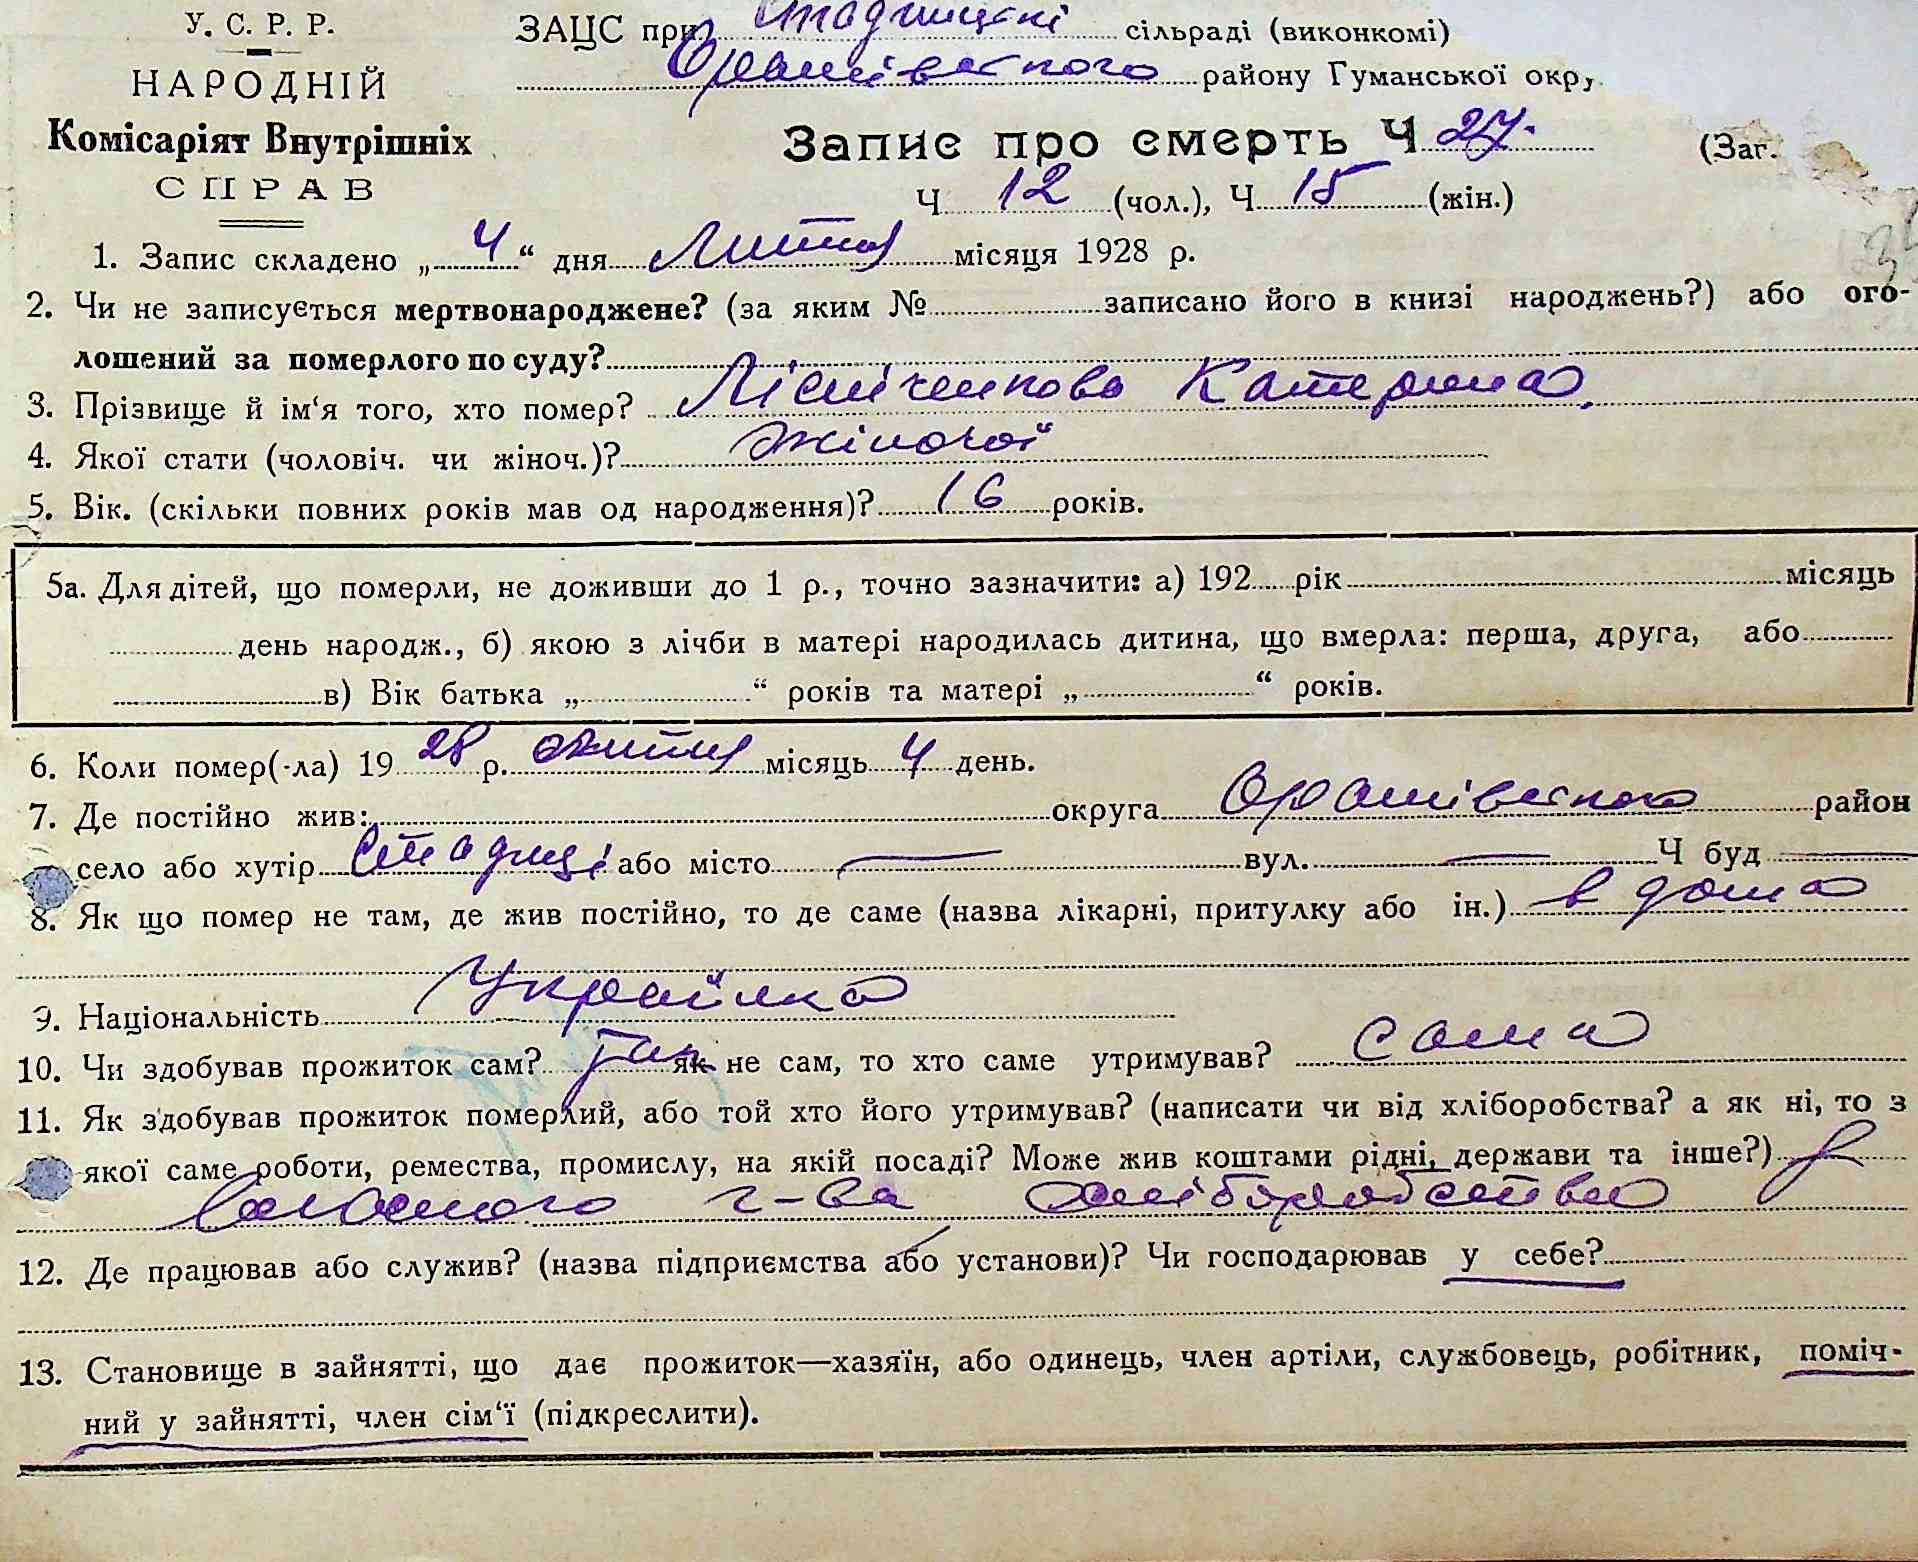 У. С. Р. Р.
НАРОДНІЙ
Комісаріят Внутрішніх
СПРАВ
ЗАЦС при Стадницькі сільраді (виконкомі)
Оратівського району Гуманської окр.
Запис про смерть Ч 27.
(Заг.
Ч 12 (чол.), Ч 15 (жін.)
1. Запис складено „ 4 “ дня Лютня місяця 1928 р.
2. Чи не записується мертвонароджене? (за яким № записано його в книзі народжень?) або ого-
лошений за померлого по суду?
3. Прізвище й ім‘я того, хто помер? Катерина
4. Якої стати (чоловіч. чи жіноч.)? Жіночої
5. Вік. (скільки повних років мав од народження)? 16 років.
5а. Для дітей, що померли, не доживши до 1 р., точно зазначити: а) 192 рік місяць
день народж., б) якою з лічби в матері народилась дитина, що вмерла: перша, друга, або
в) Вік батька „ “ років та матері „ “ років.
6. Коли помер(-ла) 19 28 р. місяць 4 день.
7. Де постійно жив: округа Оратівського район
село або хутір Стадниці або місто — вул. — Ч буд —
8. Як що помер не там, де жив постійно, то де саме (назва лікарні, притулку або ін.) в дома
9. Національність Українка
10. Чи здобував прожиток сам? як не сам, то хто саме утримував? сама
11. Як здобував прожиток померлий, або той хто його утримував? (написати чи від хліборобства? а як ні, то з
якої саме роботи, ремества, промислу, на якій посаді? Може жив коштами рідні, держави та інше?) з
власного г-ва хліборобства
12. Де працював або служив? (назва підприємства або установи)? Чи господарював у себе?
13. Становище в зайнятті, що дає прожиток—хазяїн, або одинець, член артіли, службовець, робітник, поміч-
ний у зайнятті, член сім‘ї (підкреслити).